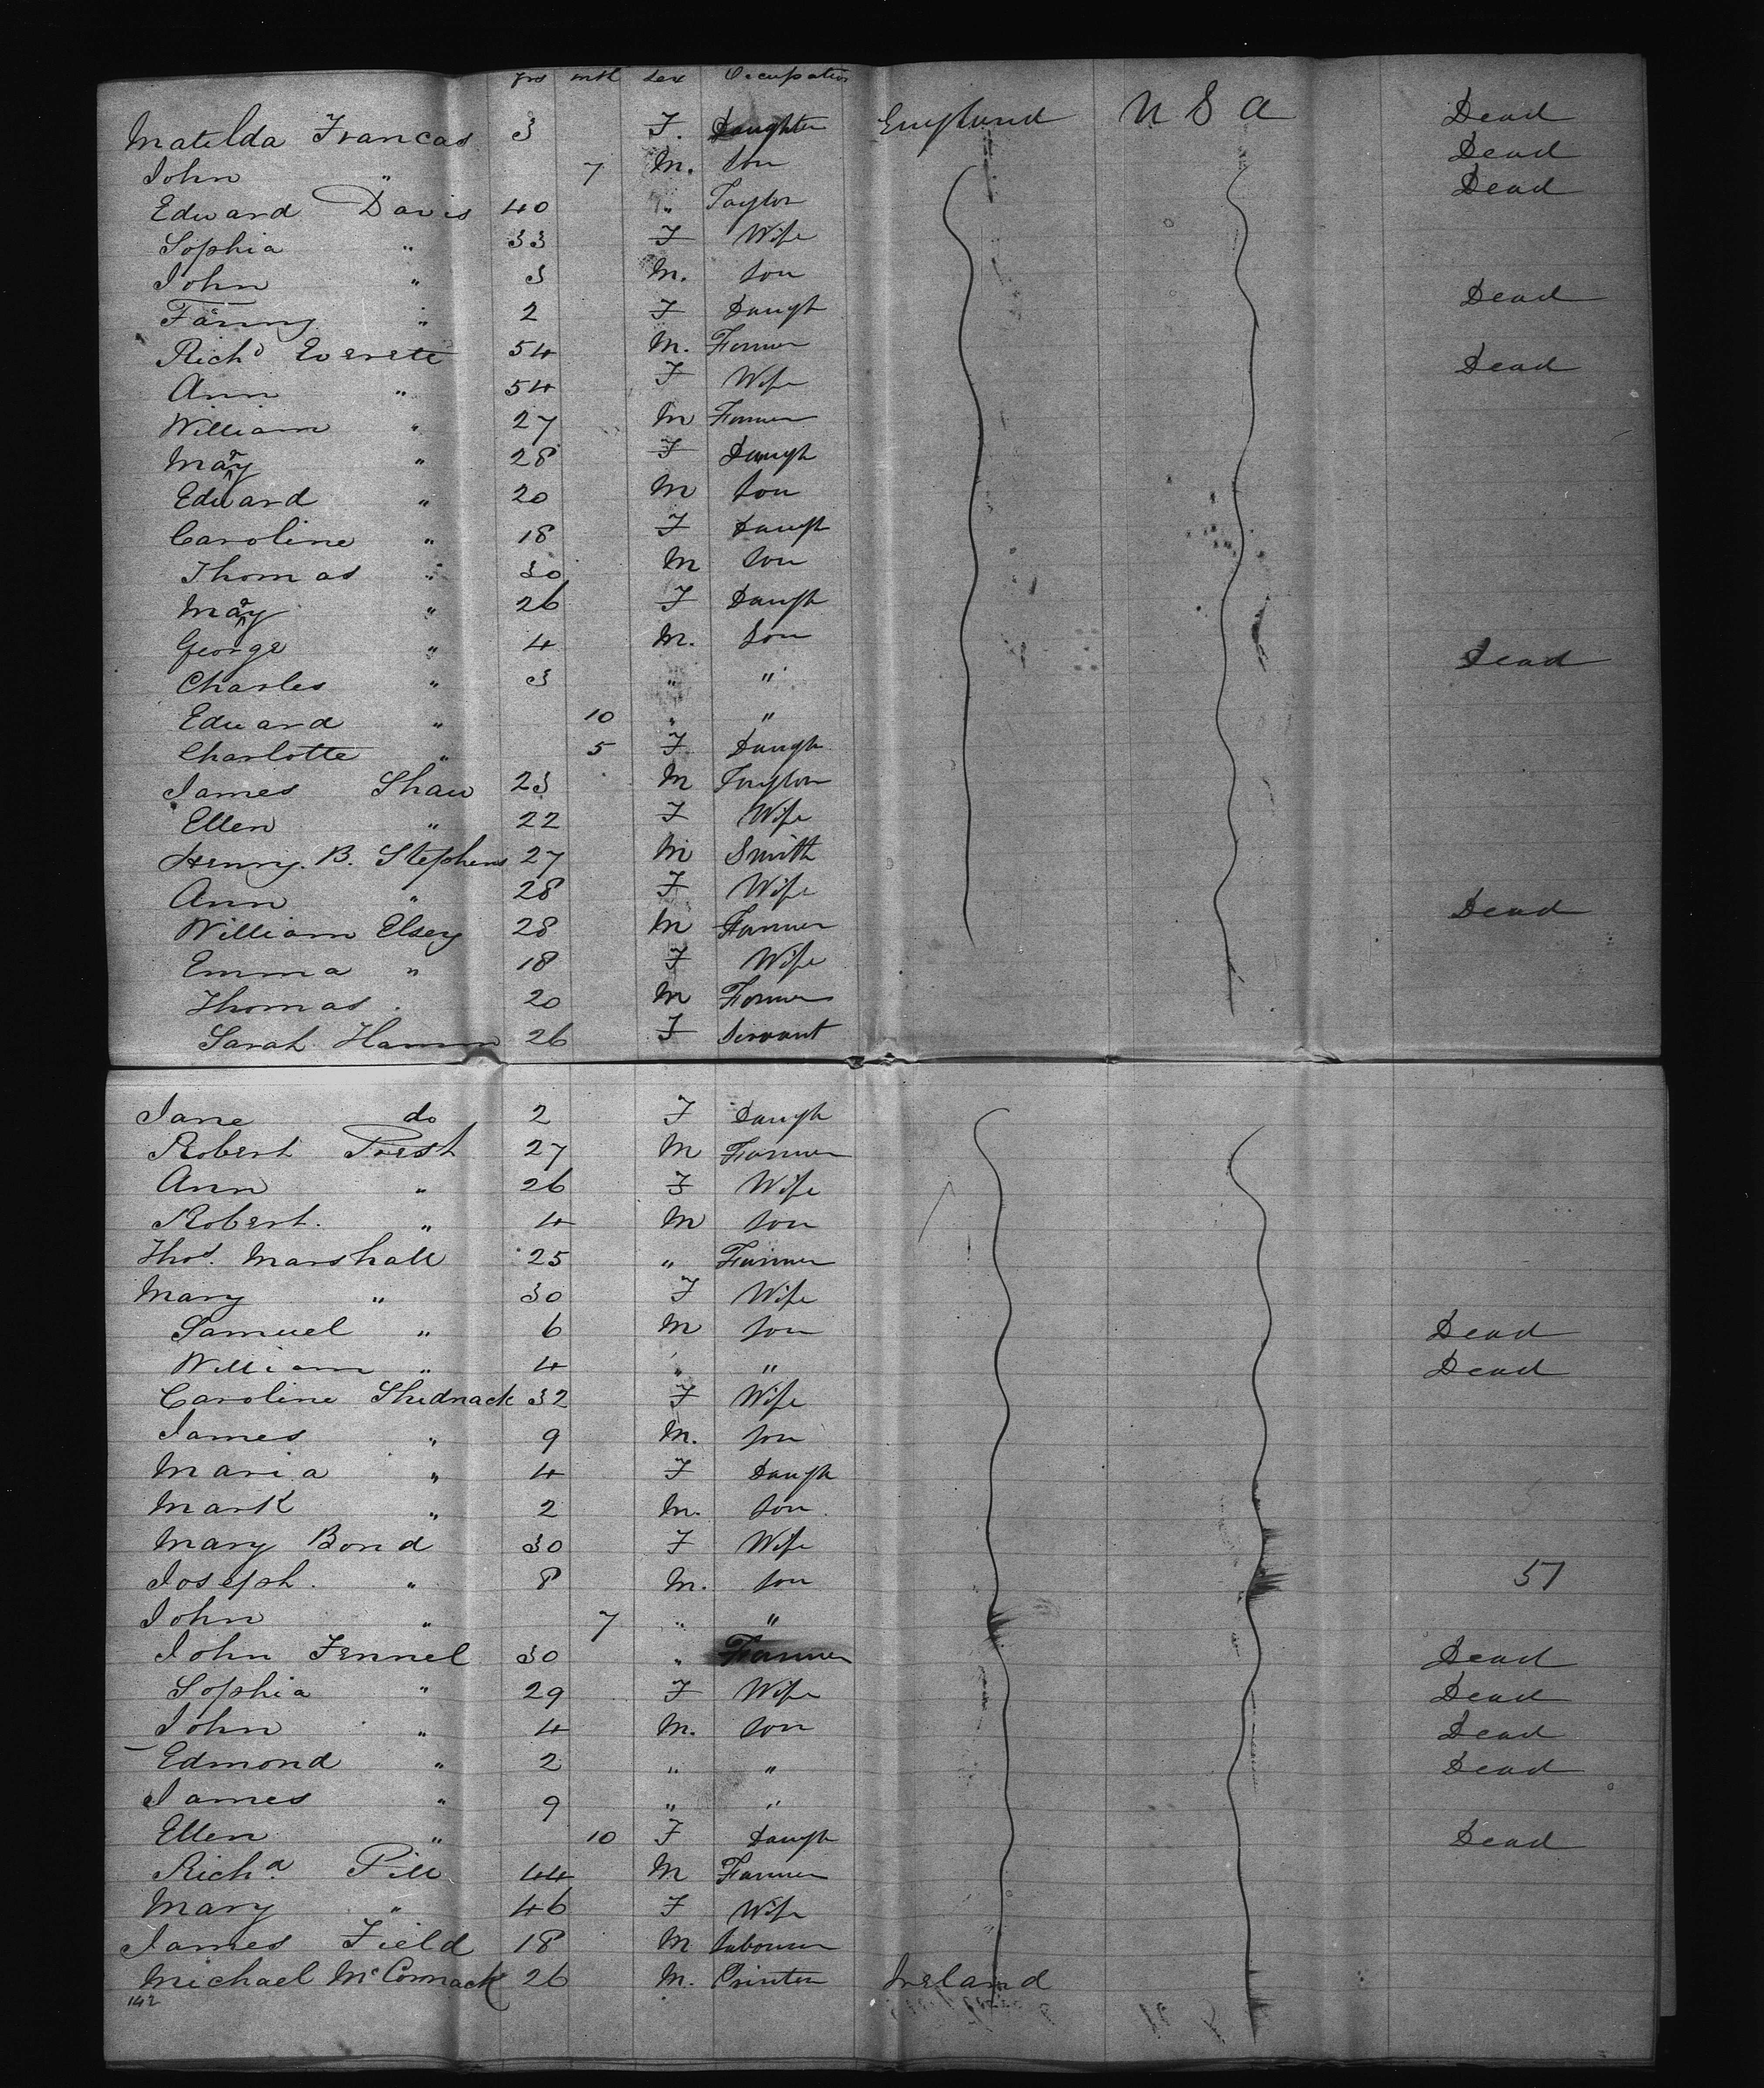 yrs mth Sex Occupation
Matilda Francas 3 F. Daughter England U S A Dead
John " 7 M. Son Dead
Edward Davis 40 " Taylor Dead
Sophia " 33 F Wife
John " 3 M. Son
Fanny " 2 F Daugh Dead
Richd Everete 54 M. Farmer
Ann " 54 F Wife Dead
William " 27 M Farmer
Mary " 28 F Daugh
Edward " 20 M Son
Caroline " 18 F Daugh
Thomas " 30 M Son
Mary " 26 F Daugh
George " 4 M. Son
Charles " 3 " " Dead
Edward " 10 " "
Charlotte " 5 F. Daugh
James Shaw 23 M Taylor
Ellen " 22 F Wife
Henry. B. Stephens 27 M Smith
Ann " 28 F Wife
William Elsey 28 M Farmer Dead
Emma " 18 F Wife
Thomas . 20 M Farmer
Sarah Hamm 26 F Servant
Jane do 2 F Daugh
Robert Prest 27 M Farmer
Ann " 26 F Wife
Robert. " 4 M Son
Thos. Marshall 25 " Farmer
Mary " 30 F Wife
Samuel " 6 M Son Dead
William " 4 " " Dead
Caroline Shednack 32 F Wife
James " 9 M. Son
Maria " 4 F Daugh
Mark " 2 M. Son
Mary Bond 30 F Wife
Joseph. " 8 M. Son 57
John " 7 " "
John Fennel 30 " Farmer Dead
Sophia " 29 F Wife Dead
John " 4 M. Son Dead
Edmond " 2 " " Dead
James " 9 " "
Ellen " 10 F Daugh Dead
Richd. Pill 44 M Farmer
Mary " 46 F Wife
James Field 18 M Labourer
Michael McCormack 26 M. Printer Ireland
142